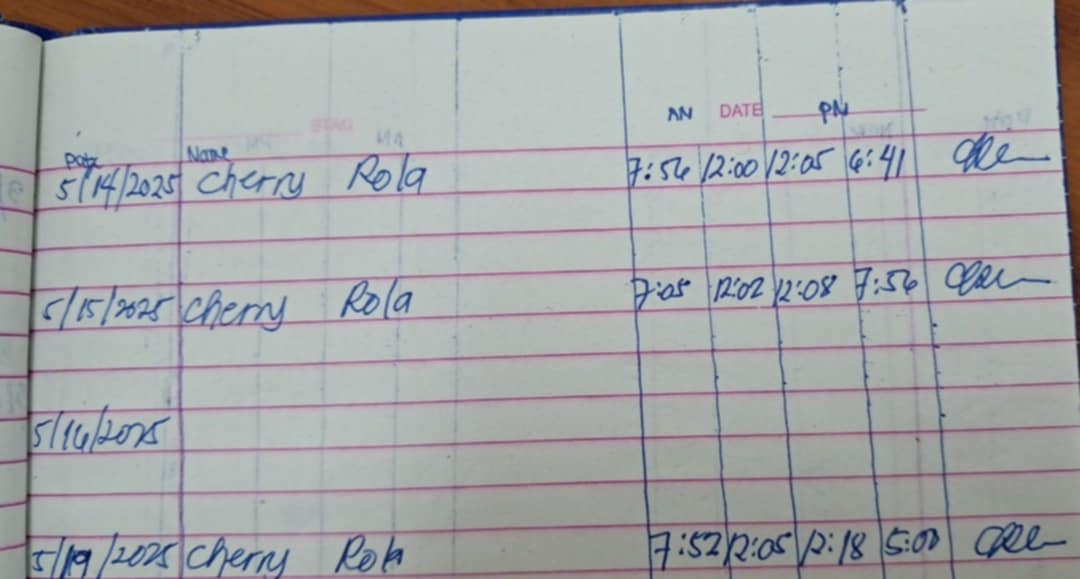 AN DATE PN
Date Name
5/14/2025 Cherry Rola 7:56 12:00 12:05 6:41
5/15/2025 Cherry Rola 7:05 12:02 12:08 7:56
5/16/2025
5/19/2025 Cherry Rola 7:52 12:05 12:18 5:00